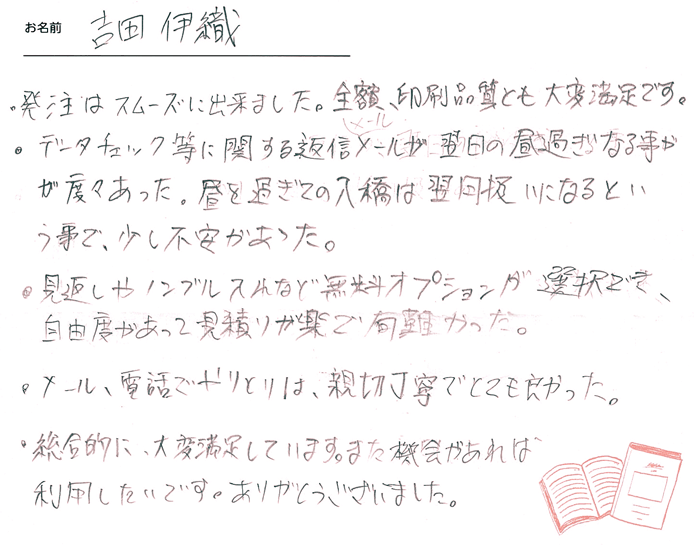 お名前 吉田 伊織
・発注はスムーズに出来ました。全額、印刷品質とも大変満足です。
メール
・データチェック等に関する返信メールが翌日の昼過ぎなる事が
が度々あった。昼を過ぎての入稿は翌日扱いになるとい
う事で、少し不安があった。
・見返しやノンブル入れなど無料オプションが選択でき、
自由度があって見積りが楽で有難かった。
・メール、電話でやりとりは、親切丁寧でとても良かった。
・総合的に、大変満足しています。また機会があれば
利用したいです。ありがとうございました。